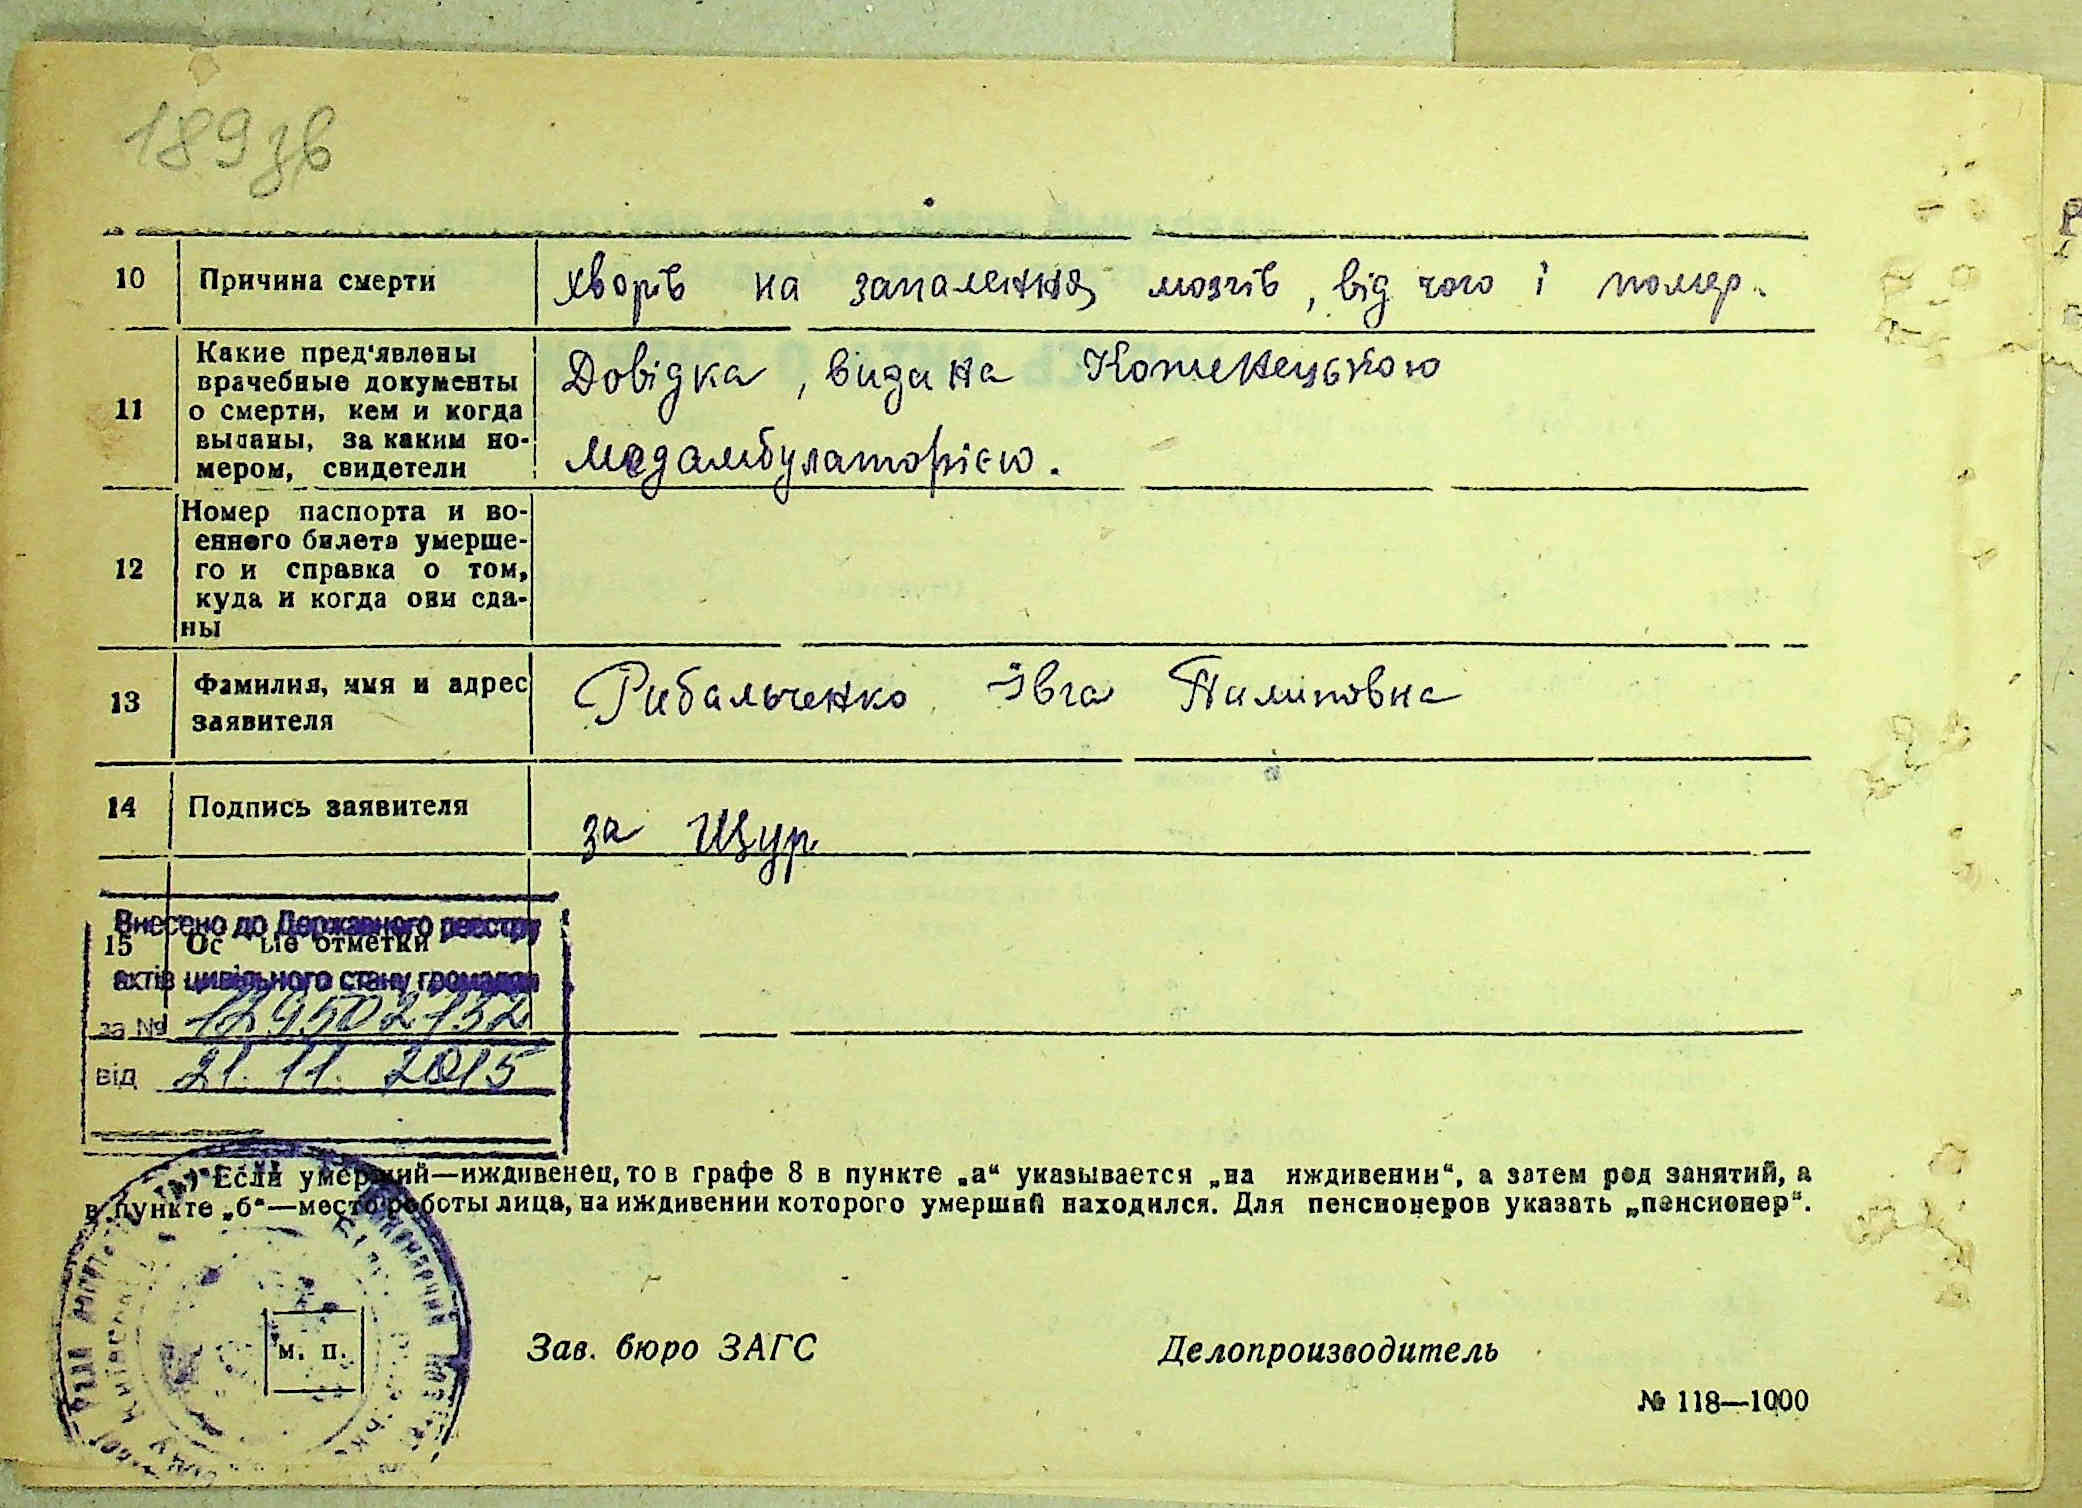 189зв
10 Причина смерти хворів на запалення мозгів, від чого і помер.
11 Какие пред'явлены
врачебные документы
о смерти, кем и когда
выданы, за каким но-
мером, свидетели
Довідка, видана
медамбулаторією.
12 Номер паспорта и во-
енного билета умерше-
го и справка о том,
куда и когда они сда-
ны
13 Фамилия, имя и адрес
заявителя
Рибальченко Івга Пилиповна
14 Подпись заявителя за Щур
Внесено до Державного реєстру
15 отметки
актів цивільного стану громадян
за № 129502132
від 21.11.2015
Если умерший—иждивенец, то в графе 8 в пункте „а“ указывается „на иждивении“, а затем род занятий, а
в пункте „б“—место работы лица, на иждивении которого умерший находился. Для пенсионеров указать „пенсионер“.
м. п.
Зав. бюро ЗАГС Делопроизводитель
№ 118—1000